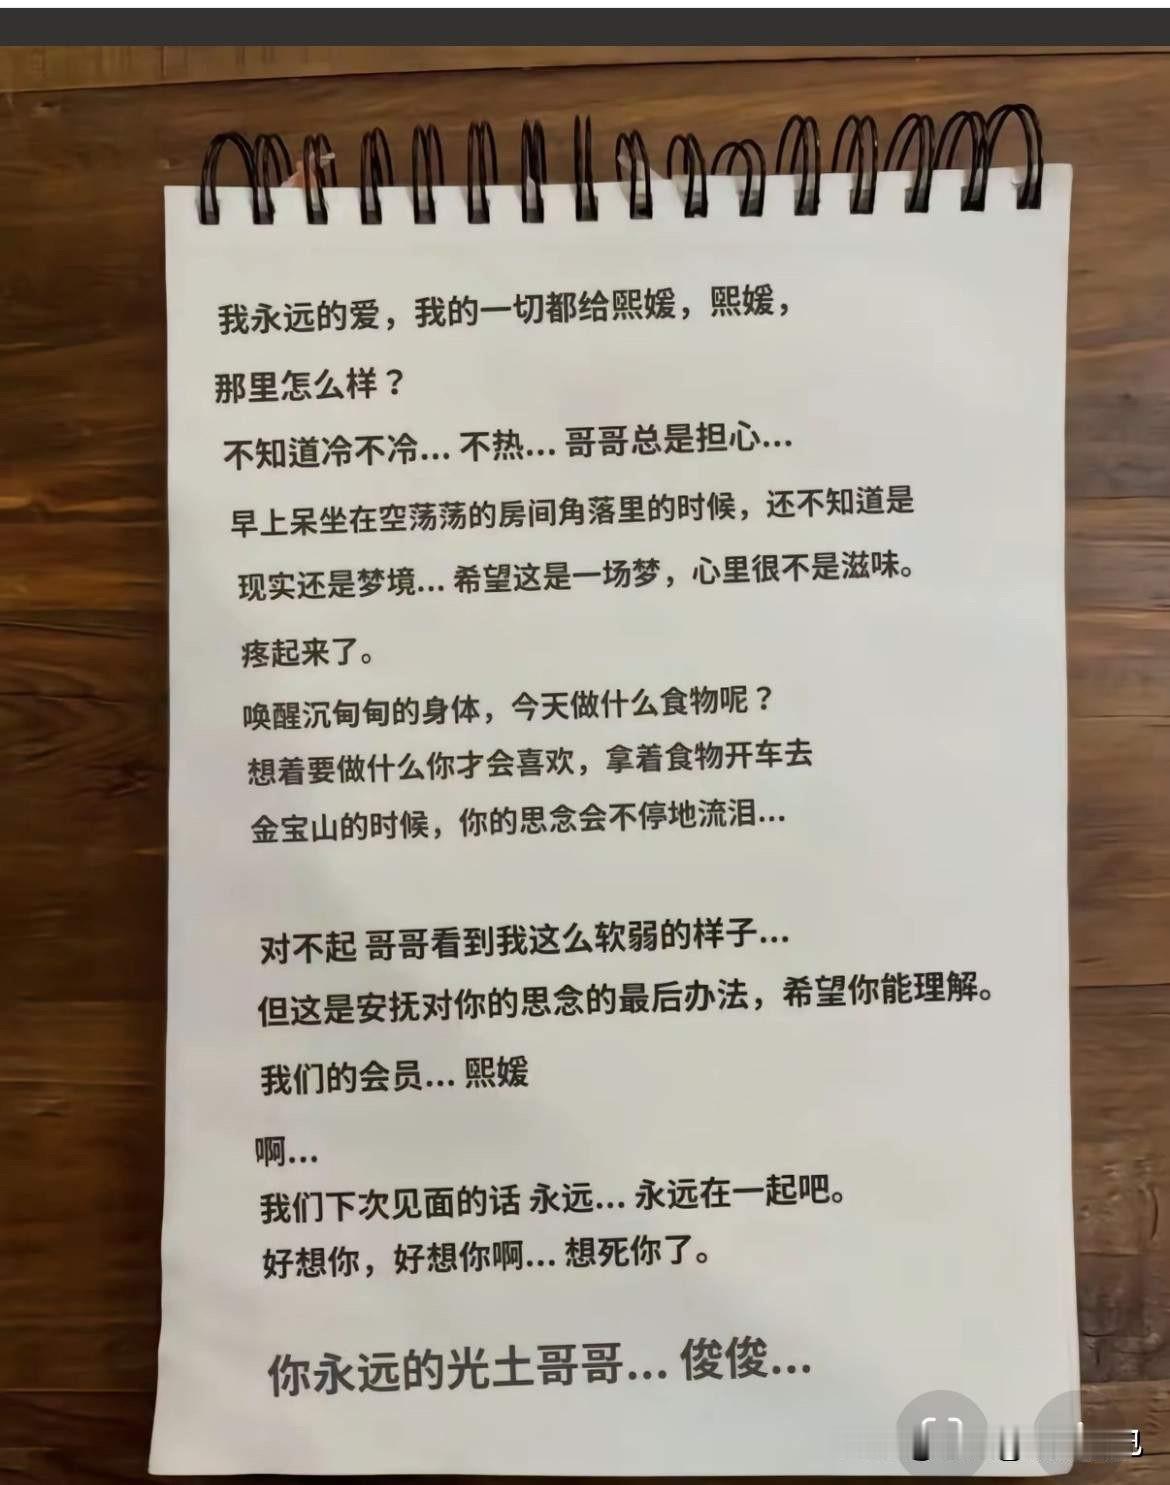 我永远的爱，我的一切都给熙媛，熙媛，
那里怎么样？
不知道冷不冷... 不热... 哥哥总是担心...
早上呆坐在空荡荡的房间角落里的时候，还不知道是
现实还是梦境... 希望这是一场梦，心里很不是滋味。
疼起来了。
唤醒沉甸甸的身体，今天做什么食物呢？
想着要做什么你才会喜欢，拿着食物开车去
金宝山的时候，你的思念会不停地流泪...
对不起 哥哥看到我这么软弱的样子...
但这是安抚对你的思念的最后办法，希望你能理解。
我们的会员... 熙媛
啊...
我们下次见面的话 永远... 永远在一起吧。
好想你，好想你啊... 想死你了。
你永远的光土哥哥... 俊俊...